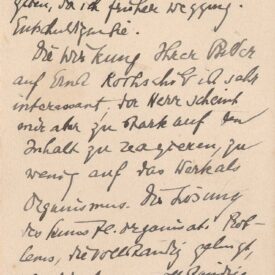 geben, da ich früher wegging.
Entschuldigen Sie.
Die Wirkung Ihrer Bilder
auf Ernst Rothschild ist sehr
interessant, der Herr scheint
mir aber zu stark auf den
Inhalt zu reagieren, zu
wenig auf das Werk als
Organismus. Die Lösung
des künstl. organisat. Prob-
lems, die vollständig gelingt,
vollständig